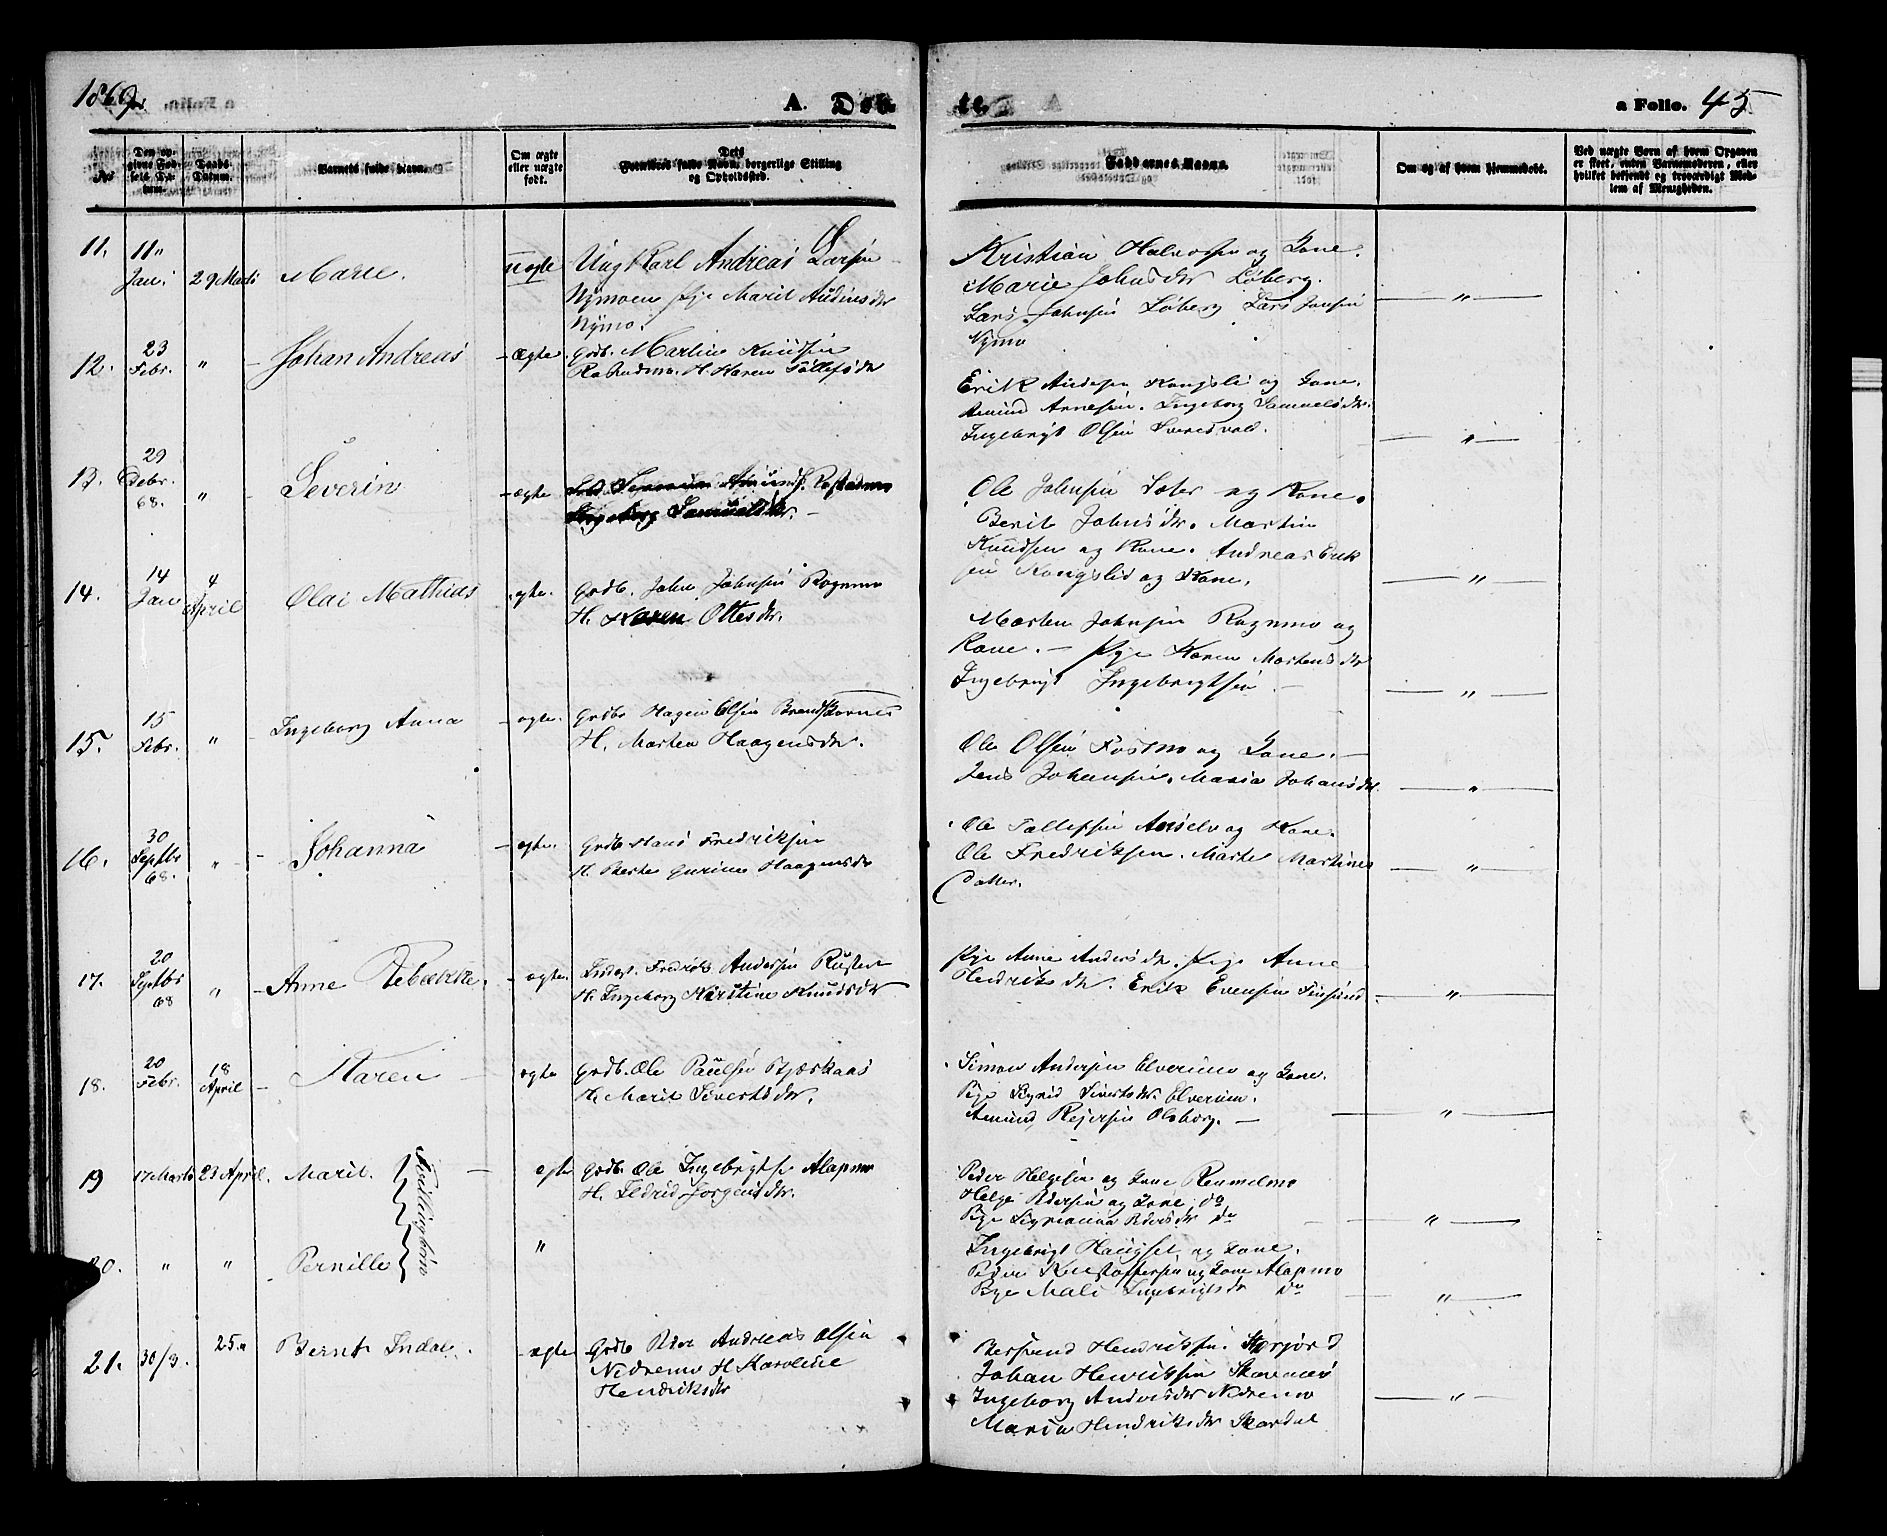 1869
A. Døb-
te.
a Folio. 45
No
Den op-
givne Fød-
sels Da-
tum.
Daabs-
Datum.
Barnets fulde Navn.
Om ægte
eller uægte
født.
Dets
Forældres fulde Navn, borgerlige Stilling
og Opholdssted.
Faddernes Navne.
Om og af hvem hjemmedøbt.
Ved uægte Børn af hvem Opgaven
er skeet, enten Barnemoderen, eller
hvilket bekjendt og troværdigt Med-
lem af Menigheden.
11. 11" Jan. 29 Marts Marie. Uægte Ung Karl Andreas Larsen
Nymoen Pige Marit Audinsdr
Nymo.
Kristian Halvorsen og Kone.
Marie Johnsdr Løberg.
Lars Johnsen Løberg Lars Jonsen
Nymo "
12. 23 Febr. " Johan Andreas Ægte. Grdb. Martin Knudsen
H. Karen Tollefsdr
Erik Andersen Kongslid og Kone.
Amund Arnesen. Ingeborg Samuelsdr.
Ingebrigt Olsen "
13. 29 Debr. 68. " Severin ægte
Ingeborg Samuelsdr.
Ole Johnsen og Kone.
Berit Johnsdr. Martin
Knudsen og Kone. Andreas Erik
sen Kongslid og Kone. "
14. 14 Jan 4 April Olai Mathias ægte. Grdb. John Johnsen Rognmo
H. Karen Ottesdr.
Morten Johnsen Rognmo og
Kone. — Pige Karen Mortensdr
Ingebrigt Ingebrigtsen "
15. 15 Febr. " Ingeborg Anna ægte. Grdbr Hagen Olsen Brandskognes
H. Marten Haagensdr.
Ole Olsen Fosmo og Kone. —
Jens Johansen. Maria Johansdr. "
16. 30 Septbr 68. " Johanna ægte. Grdb Hans Fredriksen
H. Berte Gurine Haagensdr
Ole Tollefsen og Kone.
Ole Fredriksen. Marte Martines
Datter. "
17. 20 Septbr 68 " Anne Rebækka. ægte. Fredrik Andersen Rusten
H. Ingeborg Kirstine Knudsdr
Pige Anne Andersdr. Pige Anne
Hendriksdr. Erik Evensen "
18. 20 Febr. 18 April Maren ægte Grdb. Ole Paulsen Bjerkaas
H. Marit Sivertsdr.
Simon Andersen Elverum og Kone.
Pige Sigrid Sivertsdr. Elverum.
Amund Olsborg. — "
19 17 Marts 23 April. Marit. Tvillingbørn ægte Grdb. Ole Ingebrigtsen Alapmo
H. Eldrid Jørgensdr.
Peder Helgesen og Kone Rundmo
Helge Pedersen og Kone do
do "
20. " " Pernille "
Ingebrigt Haugset og Kone.
Peder Kristoffersen og Kone Alapmo
Pige Mali Ingebrigtsdr do "
21. 30/3. 25. " Bernt Indal. ægte Grdb Peder Andreas Olsen
Nedremo H Karoline
Hendriksdr
Hendriksen.
Johan Henriksen
Ingeborg Andersdr Nedremo
Maria Hendriksdr Skardal "